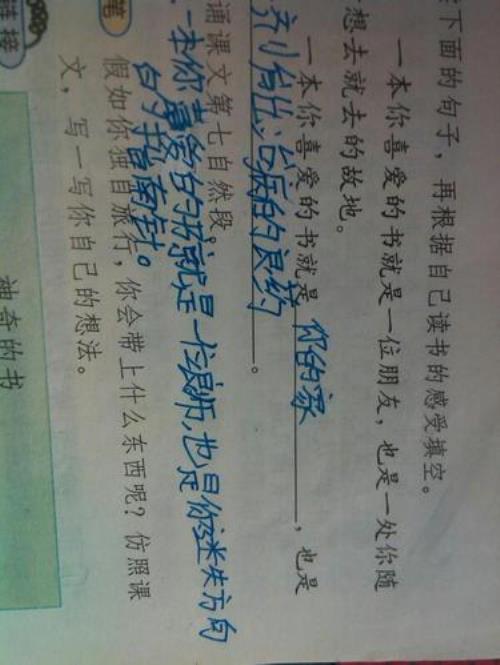 下面的句子，再根据自己读书的感受填空。
一本你喜爱的书就是一位朋友，也是一处你随
想去就去的故地。
一本你喜爱的书就是你的家，也是
的良药。
诵课文第七自然段。
一本你喜爱的书就是一位良师，也是你迷失方向
的指南针。
笔
假如你独自旅行，你会带上什么东西呢？仿照课
文，写一写你自己的想法。
链接
神奇的书